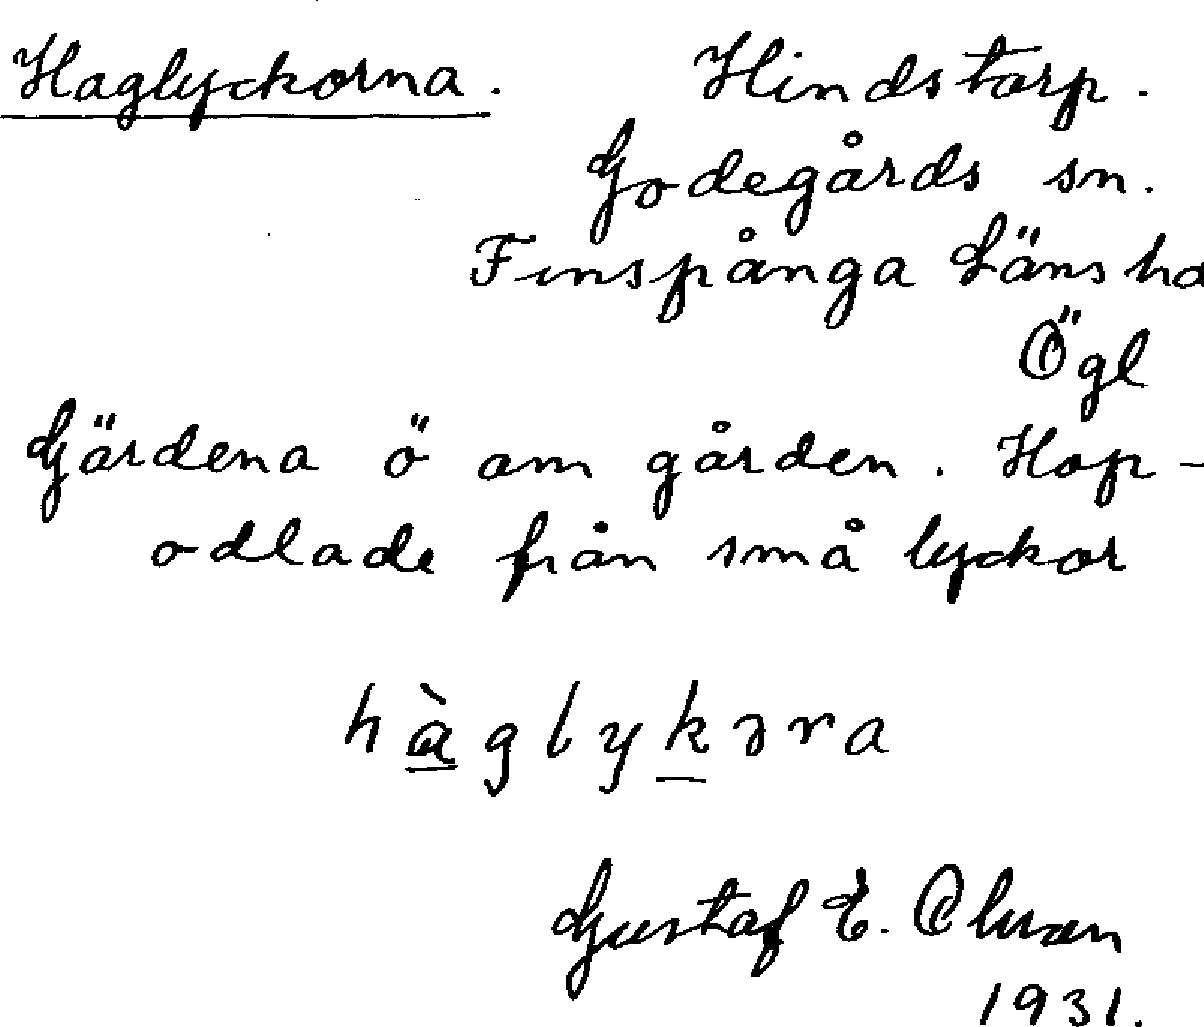 Haglyckorna. Hindstorp.
Godegårds sn.
Finspånga Läns hd
Ögl
Gärdena ö om gården. Hop-
odlade från små lyckor
hàglykəra
Gustaf E.
1931.